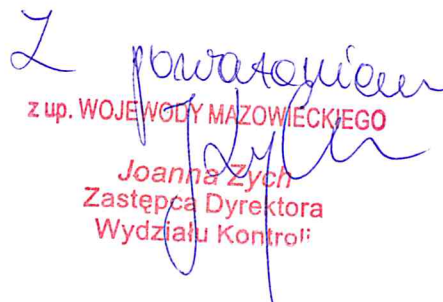 Z poważaniem
z up. WOJEWODY MAZOWIECKIEGO
JZych
Joanna Zych
Zastępca Dyrektora
Wydziału Kontroli